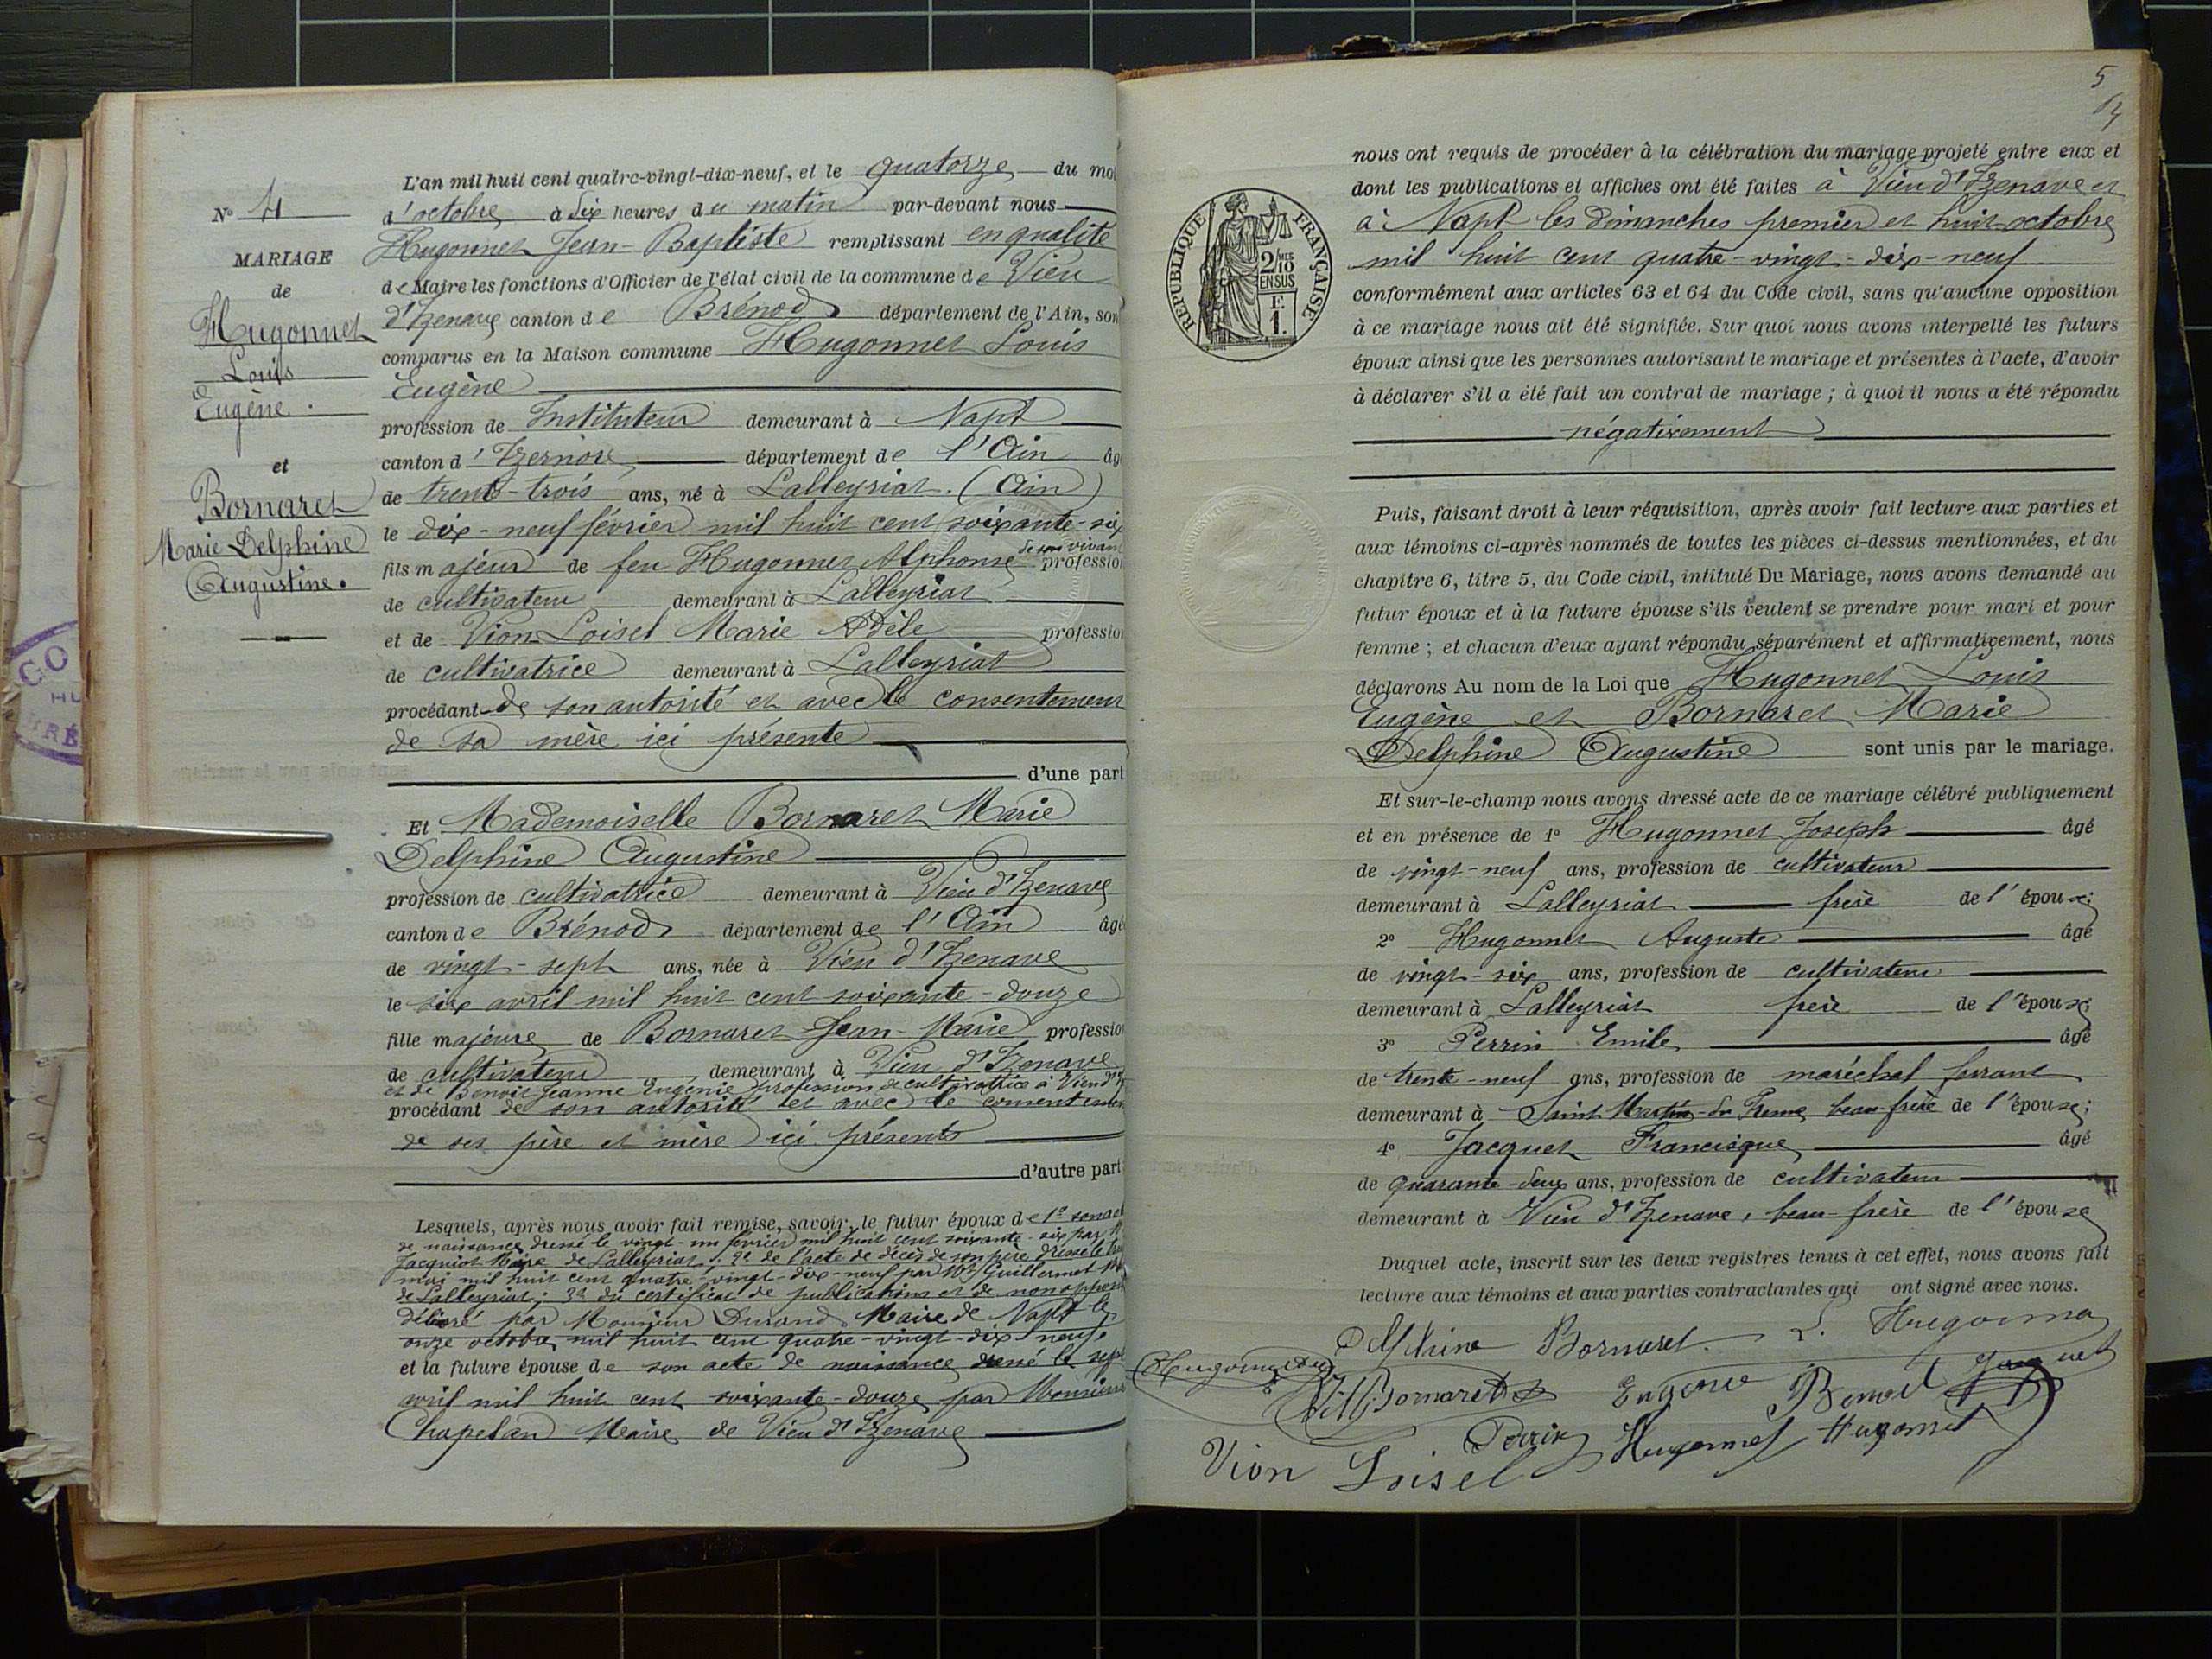 N° 4
MARIAGE
de
Hugonnet
Louis
Eugène.
et
Bornaret
Marie Delphine
Augustine.
L'an mil huit cent quatre-vingt-dix-neuf, et le quatorze du moi
d'octobre à dix heures du matin par-devant nous
Hugonnet Jean-Baptiste remplissant en qualité
de Maire les fonctions d'Officier de l'état civil de la commune de Vieu
d'Izenave canton de Brénod département de l'Ain, son
comparus en la Maison commune Hugonnet Louis
Eugène
profession de Instituteur demeurant à Napt
canton d'Izernore département de l'Ain âg
de trente-trois ans, né à Lalleyriat. (Ain)
le dix-neuf février mil huit cent soixante-six
fils majeur de feu Hugonnet Alphonse de son vivant profession
de cultivateur demeurant à Lalleyriat
et de Vion-Loisel Marie Adèle profession
de cultivatrice demeurant à Lalleyriat
procédant de son autorité et avec le consentement
de sa mère ici présente
d'une part
Et Mademoiselle Bornaret Marie
Delphine Augustine
profession de cultivatrice demeurant à Vieu d'Izenave
canton de Brénod département de l'Ain âgé
de vingt-sept ans, née à Vieu d'Izenave
le six avril mil huit cent soixante-douze
fille majeure de Bornaret Jean-Marie profession
de cultivateur demeurant à Vieu d'Izenave
et de Benoit Jeanne Eugénie profession de cultivatrice à Vieu d'Iz
procédant de son autorité et avec le consentemen
de ses père et mère ici présents
d'autre part
Lesquels, après nous avoir fait remise, savoir: le futur époux de 1° son ac
de naissance dressé le vingt-un février mil huit cent soixante-six par M
Jacquiot Maire de Lalleyriat; 2° de l'acte de décès de son père dressé le
mai mil huit cent quatre-vingt-dix-neuf par Mr Guillermet
de Lalleyriat; 3° du certificat de publications et de non opposi
délivré par Monsieur Durand Maire de Napt le
onze octobre mil huit cent quatre-vingt-dix-neuf.
et la future épouse de son acte de naissance dressé le sept
avril mil huit cent soixante-douze par Monsieur
Chapelan Maire de Vieu d'Izenave
5
RÉPUBLIQUE FRANÇAISE
2/10 MES
EN SUS
F.
1.
nous ont requis de procéder à la célébration du mariage projeté entre eux et
dont les publications et affiches ont été faites à Vieu d'Izenave et
à Napt les dimanches premier et huit octobre
mil huit cent quatre-vingt-dix-neuf
conformément aux articles 63 et 64 du Code civil, sans qu'aucune opposition
à ce mariage nous ait été signifiée. Sur quoi nous avons interpellé les futurs
époux ainsi que les personnes autorisant le mariage et présentes à l'acte, d'avoir
à déclarer s'il a été fait un contrat de mariage ; à quoi il nous a été répondu
négativement
Puis, faisant droit à leur réquisition, après avoir fait lecture aux parties et
aux témoins ci-après nommés de toutes les pièces ci-dessus mentionnées, et du
chapitre 6, titre 5, du Code civil, intitulé Du Mariage, nous avons demandé au
futur époux et à la future épouse s'ils veulent se prendre pour mari et pour
femme ; et chacun d'eux ayant répondu séparément et affirmativement, nous
déclarons Au nom de la Loi que Hugonnet Louis
Eugène et Bornaret Marie
Delphine Augustine sont unis par le mariage.
Et sur-le-champ nous avons dressé acte de ce mariage célébré publiquement
et en présence de 1° Hugonnet Joseph âgé
de vingt-neuf ans, profession de cultivateur
demeurant à Lalleyriat frère de l'époux;
2° Hugonnet Auguste âgé
de vingt-six ans, profession de cultivateur
demeurant à Lalleyriat frère de l'époux;
3° Perrin Emile âgé
de trente-neuf ans, profession de maréchal ferrant
demeurant à Saint Martin-du Fresne, beau-frère de l'épouse;
4° Jacquet Francisque âgé
de quarante-deux ans, profession de cultivateur
demeurant à Vieu d'Izenave, beau-frère de l'épouse
Duquel acte, inscrit sur les deux registres tenus à cet effet, nous avons fait
lecture aux témoins et aux parties contractantes qui ont signé avec nous.
Delphine Bornaret. L. Hugonnet
J.M. Bornaret Eugénie Benoit Jacquet
Perrin Hugonnet Hugonnet
Vion Loisel